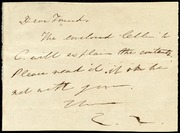 Dear Friend,
The enclosed letter to
C. will explain the contents.
Please read it, if she be
not with you.